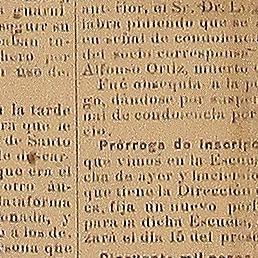 guaní
seguir su
ban to-
hero por
uso de
la tarde
ra que ie
de Santo
de car-
que era el
otro án-
plataforma
onada, y
a los de-
sona que
anterior, el Sr. Dr. L.
labra pidiendo que se
un señal de condolenc
del socio correspons
Alfonso Ortiz, muerto
Fué obsequia a la pe
go, dándose por suspe
nal de condolencia por
cio.
Prórroga de inscripc
que vimos en la Escue
cha de ayer y hacien
que tiene la Dirección
es, fija un nuevo per
para la dicha Escuela,
zará el dia 15 del prese